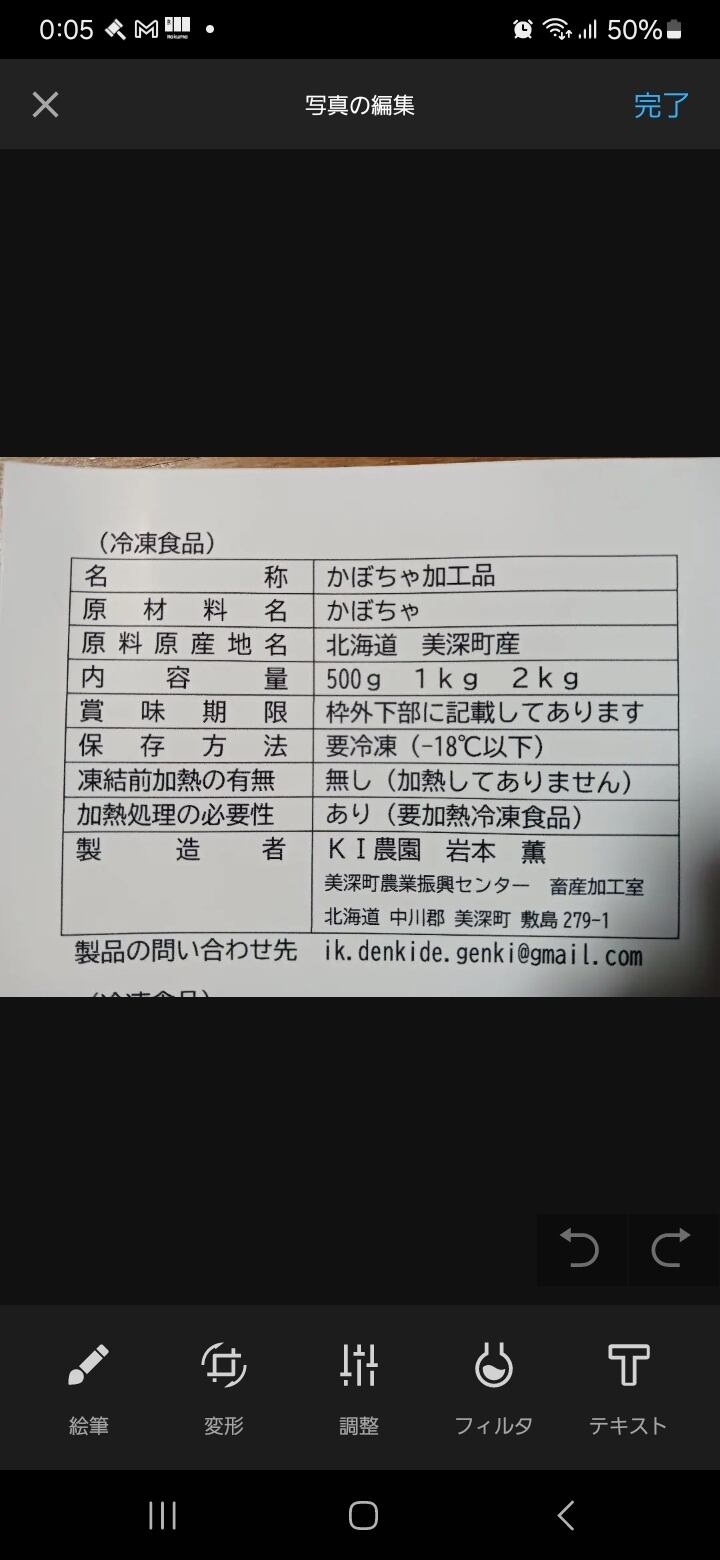 0:05
50%
写真の編集
完了
（冷凍食品）
名称 かぼちゃ加工品
原材料名 かぼちゃ
原料原産地名 北海道 美深町産
内容量 500g 1kg 2kg
賞味期限 枠外下部に記載してあります
保存方法 要冷凍（-18℃以下）
凍結前加熱の有無 無し（加熱してありません）
加熱処理の必要性 あり（要加熱冷凍食品）
製造者 KI農園 岩本 薫
美深町農業振興センター 畜産加工室
北海道 中川郡 美深町 敷島279-1
製品の問い合わせ先 ik.denkide.genki@gmail.com
（冷凍食品）
絵筆 変形 調整 フィルタ テキスト